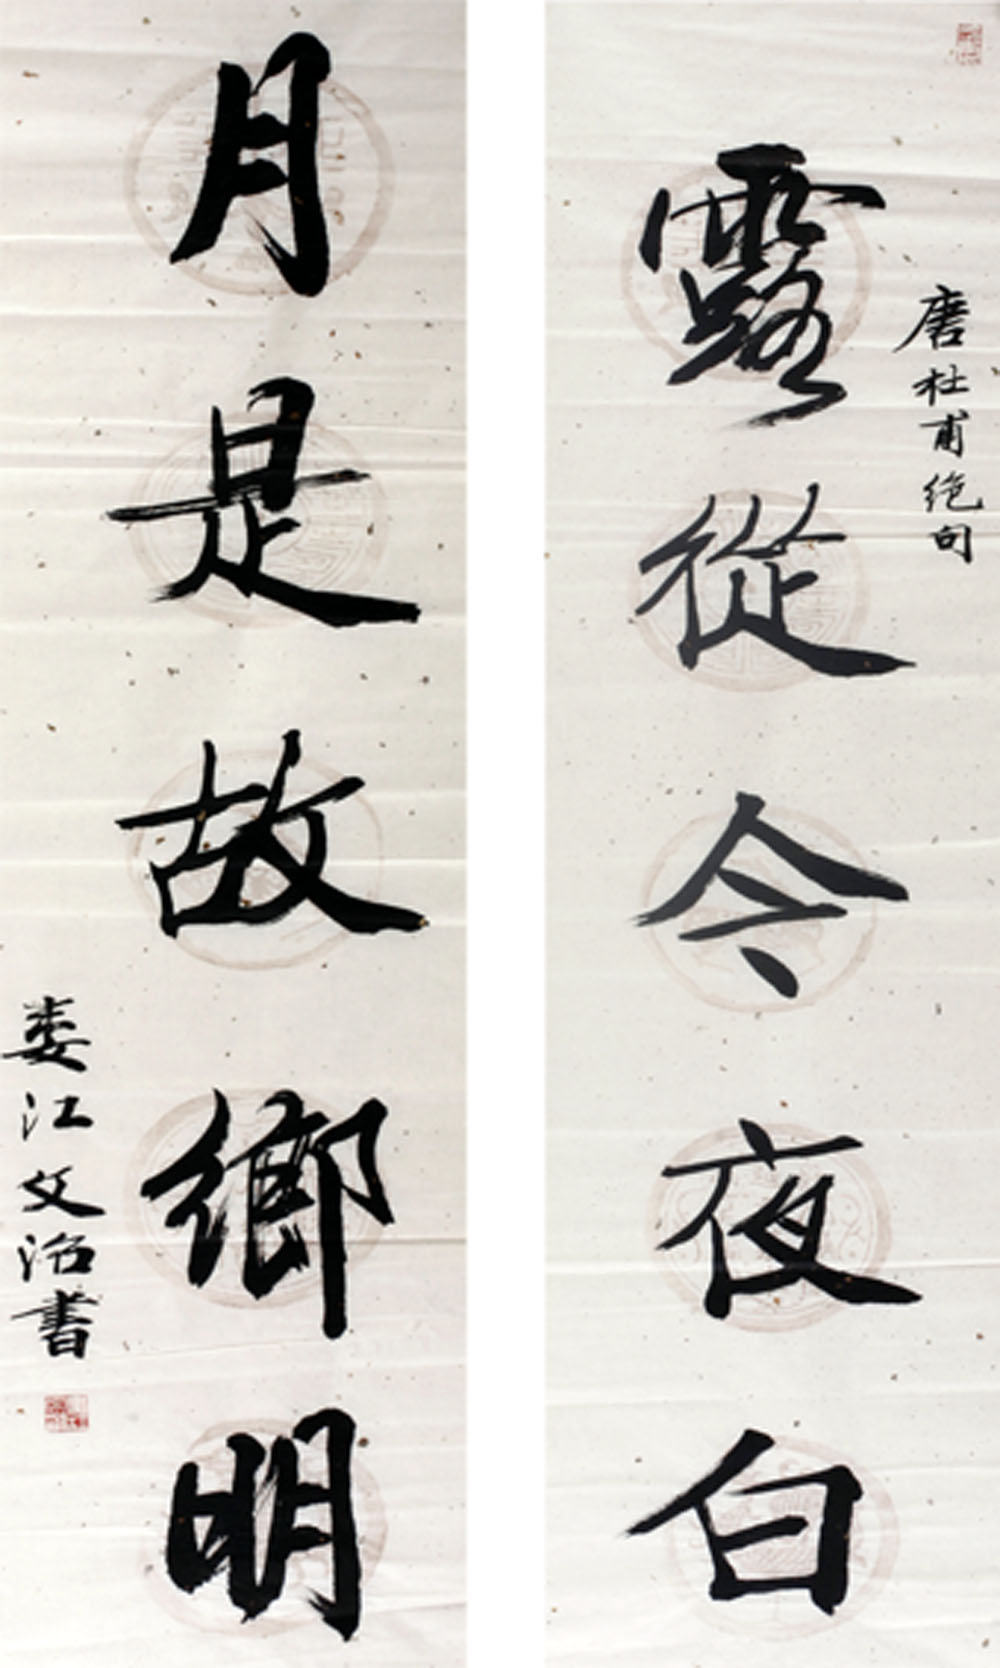 唐杜甫絶句
露從今夜白
月是故鄉明
婁江文治書